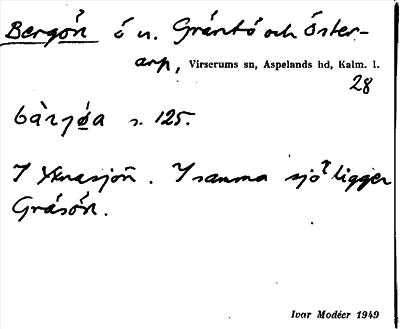 Bergön ö n. Gråntö och Öster-
arp, Virserums sn, Aspelands hd, Kalm. l.
28
bàrjǿa s. 125.
I Yxnasjön. I samma sjö ligger
Gråsön.
Ivar Modéer 1949